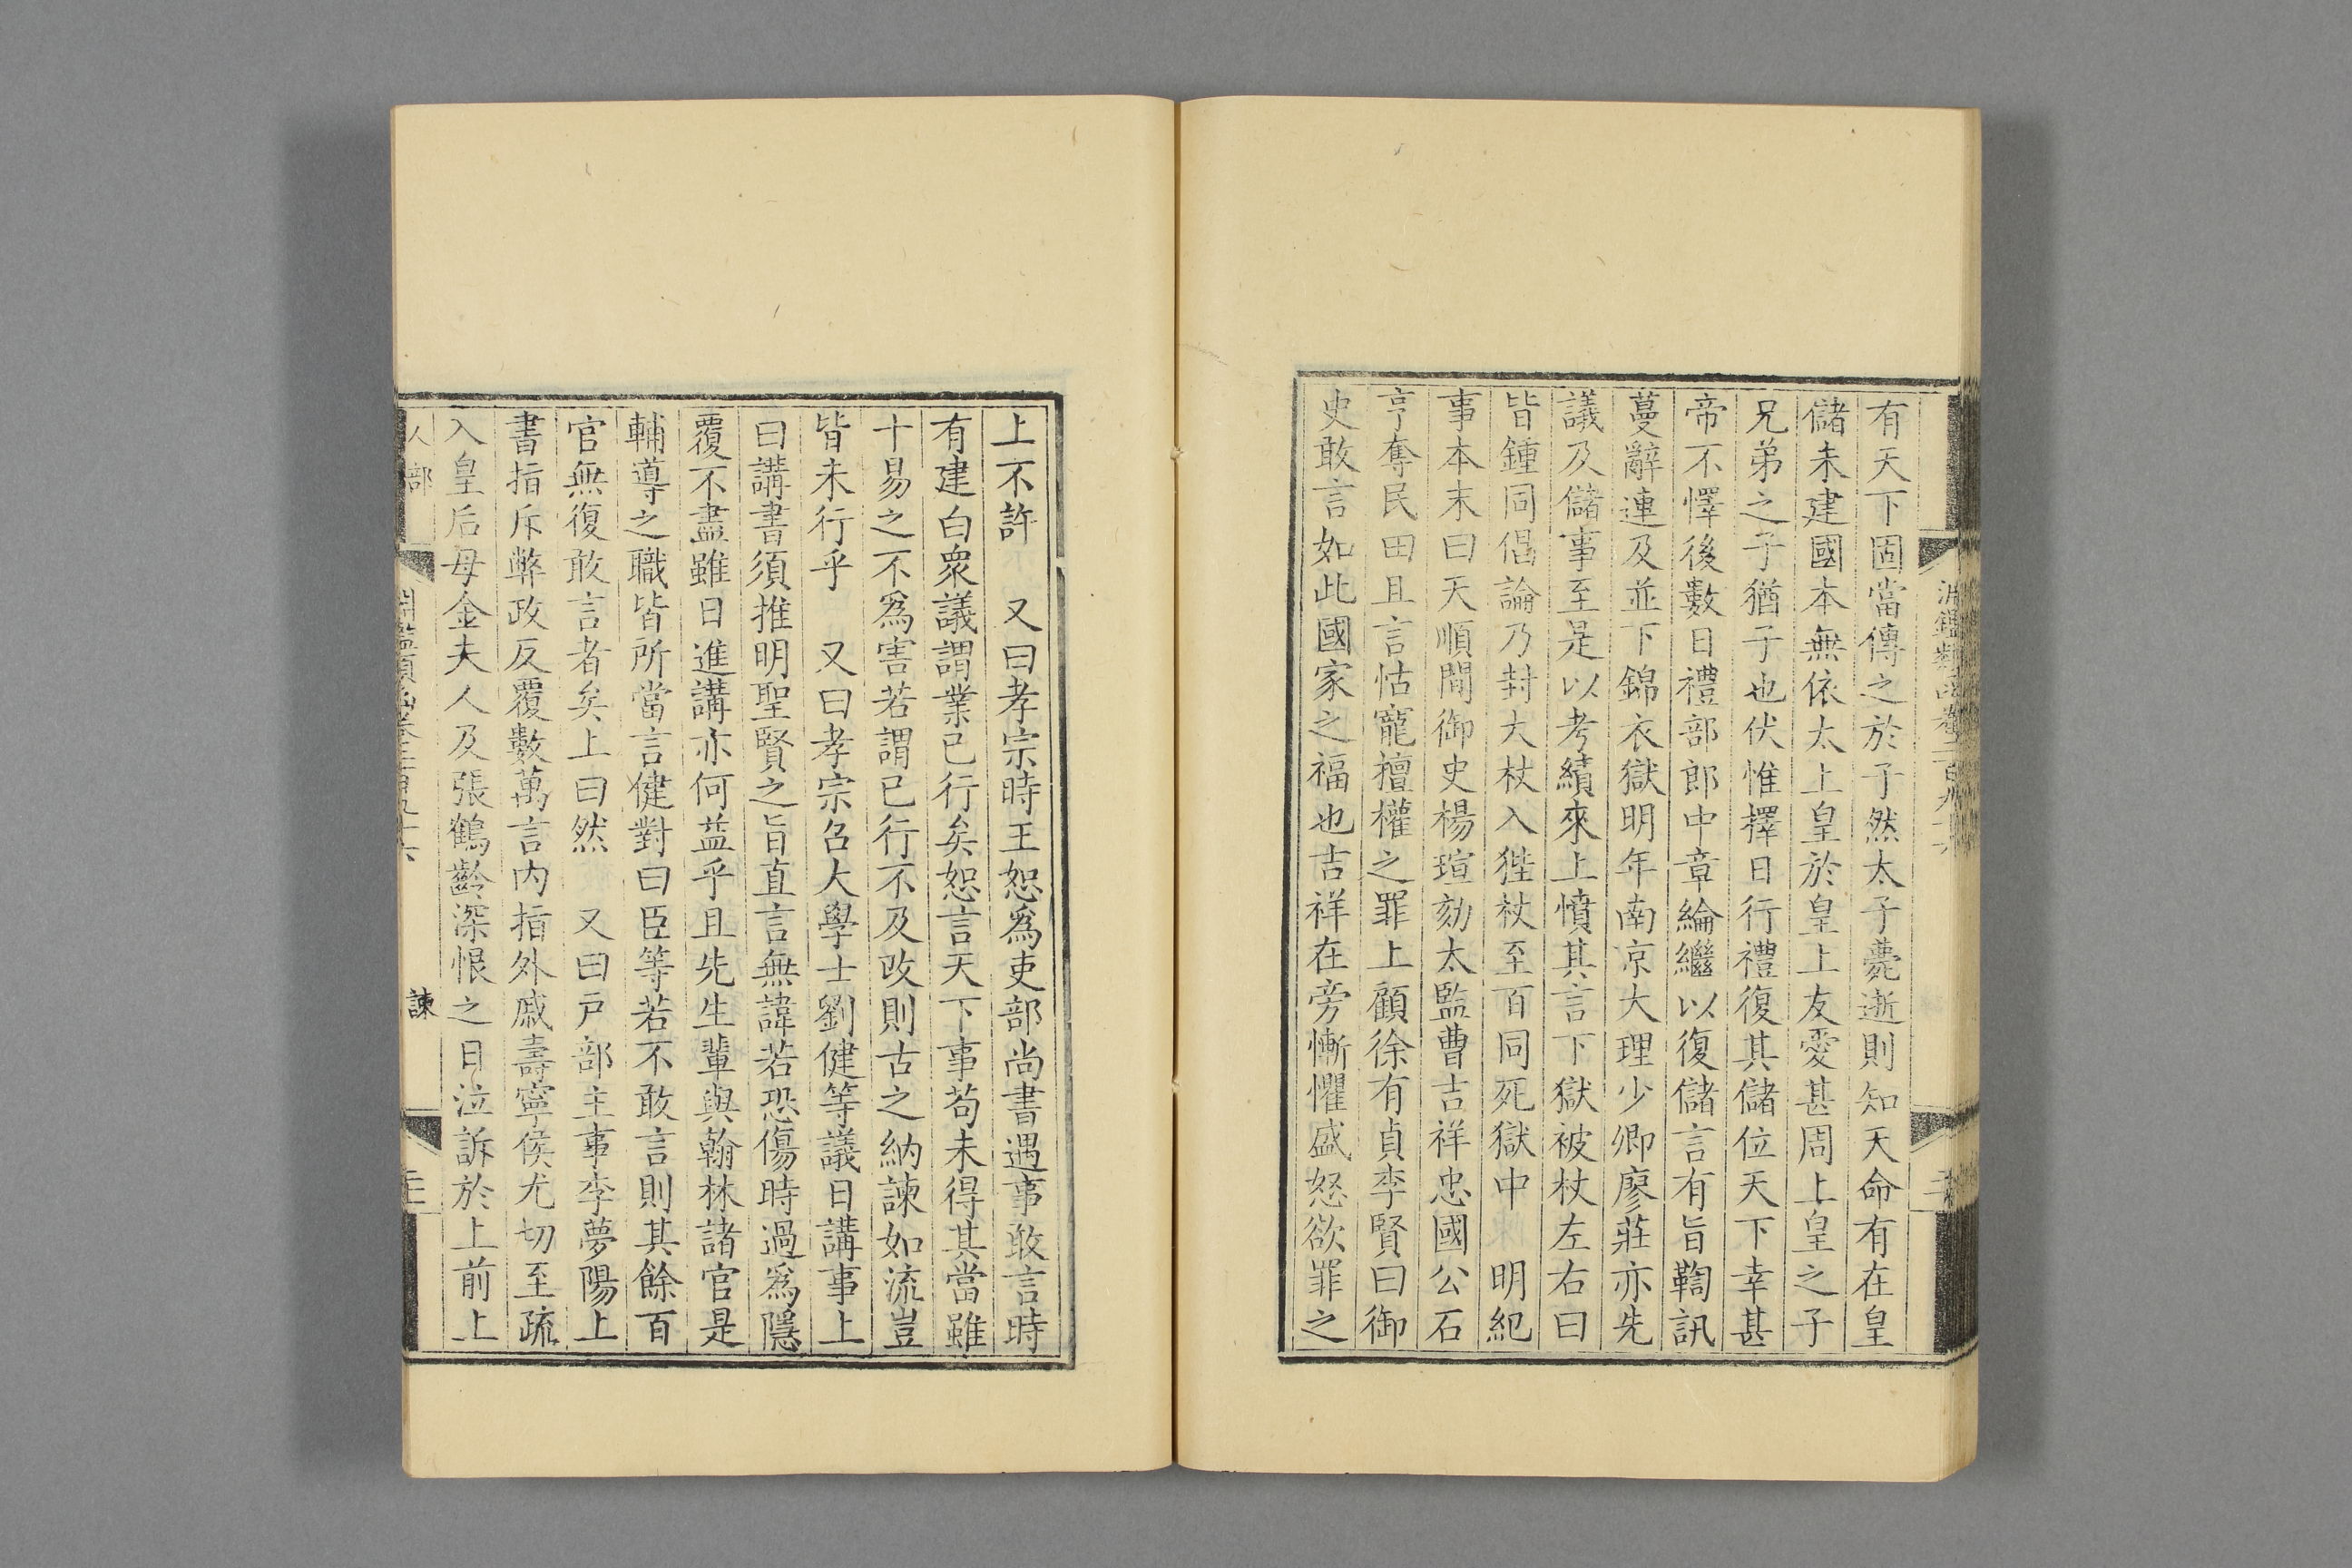 有天下固當傳之於子然太子薨逝則知天命有在皇
儲未建國本無依太上皇於皇上友愛甚周上皇之子
兄弟之子猶子也伏惟擇日行禮復其儲位天下幸甚
帝不懌後數日禮部郎中章綸繼以復儲言有旨鞫訊
蔓辭連及並下錦衣獄明年南京大理少卿廖莊亦先
議及儲事至是以考績來上憤其言下獄被杖左右曰
皆鍾同倡論乃封大杖入狴杖至百同死獄中 明紀
事本末曰天順間御史楊瑄劾太監曹吉祥忠國公石
亨奪民田且言怙寵擅權之罪上顧徐有貞李賢曰御
史敢言如此國家之福也吉祥在旁慚懼盛怒欲罪之
上不許 又曰孝宗時王恕爲吏部尚書遇事敢言時
有建白衆議謂業已行矣恕言天下事苟未得其當雖
十易之不爲害若謂已行不及改則古之納諫如流豈
皆未行乎 又曰孝宗召大學士劉健等議日講事上
曰講書須推明聖賢之旨直言無諱若恐傷時過爲隱
覆不盡雖日進講亦何益乎且先生輩與翰林諸官是
輔導之職皆所當言健對曰臣等若不敢言則其餘百
官無復敢言者矣上曰然 又曰戶部主事李夢陽上
書指斥弊政反覆數萬言内指外戚壽寧侯尤切至疏
入皇后母金夫人及張鶴齡深恨之日泣訴於上前上
人部
諫